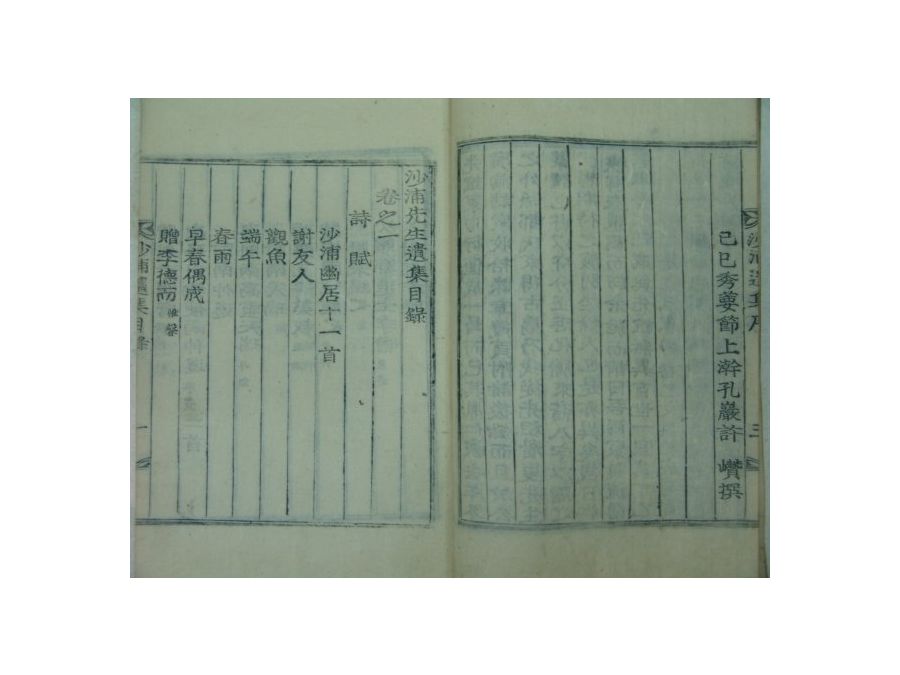 沙浦遺集序
三
己巳秀葽節上澣孔巖許 巑撰
沙浦先生遺集目錄
卷之一
詩 賦
沙浦幽居十一首
謝友人
觀魚
端午
春雨
早春偶成
贈李德而
沙浦遺集目錄
一